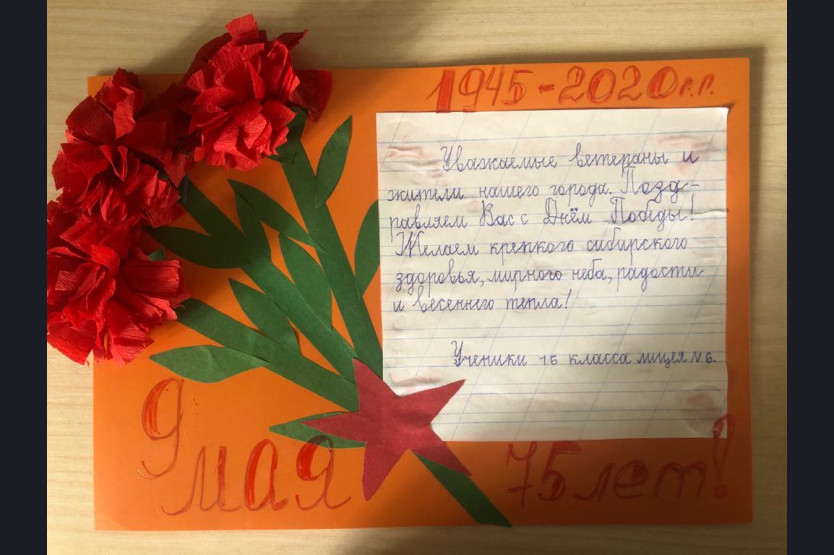 1945-2020г.г.
Уважаемые ветераны и
жители нашего города. Поздо-
равляем Вас с Днём Победы!
Желаем крепкого сибирского
здоровья, мирного неба, радости
и весеннего тепла!
Ученики 1Б класса лицея №6.
9
мая
75 лет!